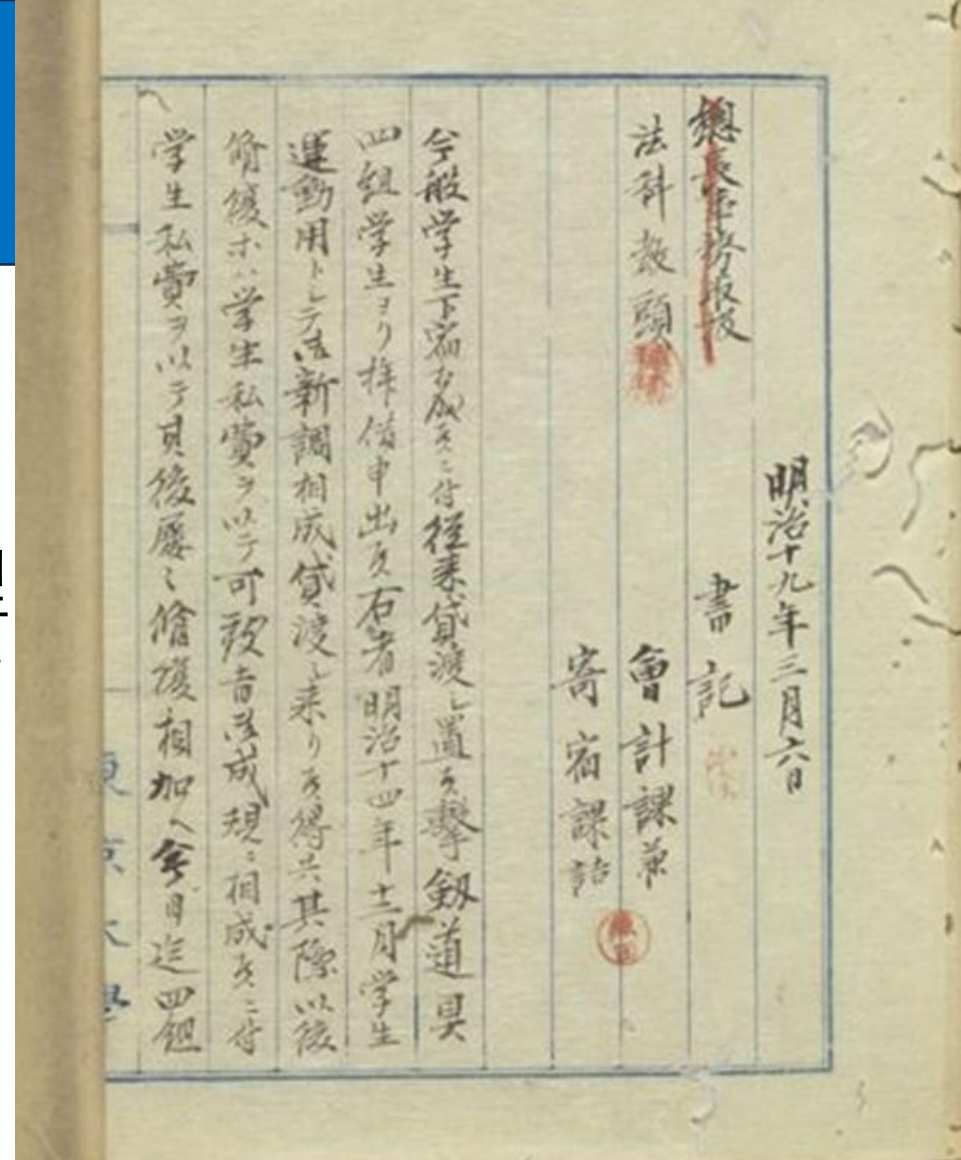 明治十九年三月六日
書記
總長事務取扱
法科教頭
會計課兼
寄宿課詰
今般学生下宿相成候ニ付従来貸渡シ置候擊劔道具
四組学生ヨリ拝借申出候右者明治十四年十二月学生
運動用トシテ御新調相成貸渡シ来リ候得共其際以後
修復ホハ学生私費ヲ以テ可致旨御成規ニ相成候ニ付
学生私費ヲ以テ其後屡々修復相加ヘ今日迄四組
東京大學